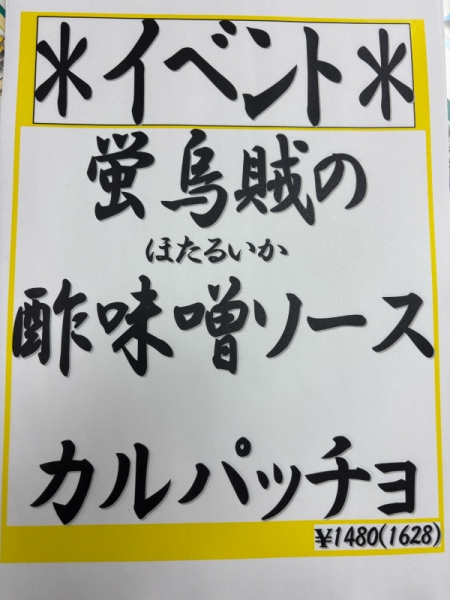 ＊イベント＊
蛍烏賊の
ほたるいか
酢味噌ソース
カルパッチョ
¥1480(1628)